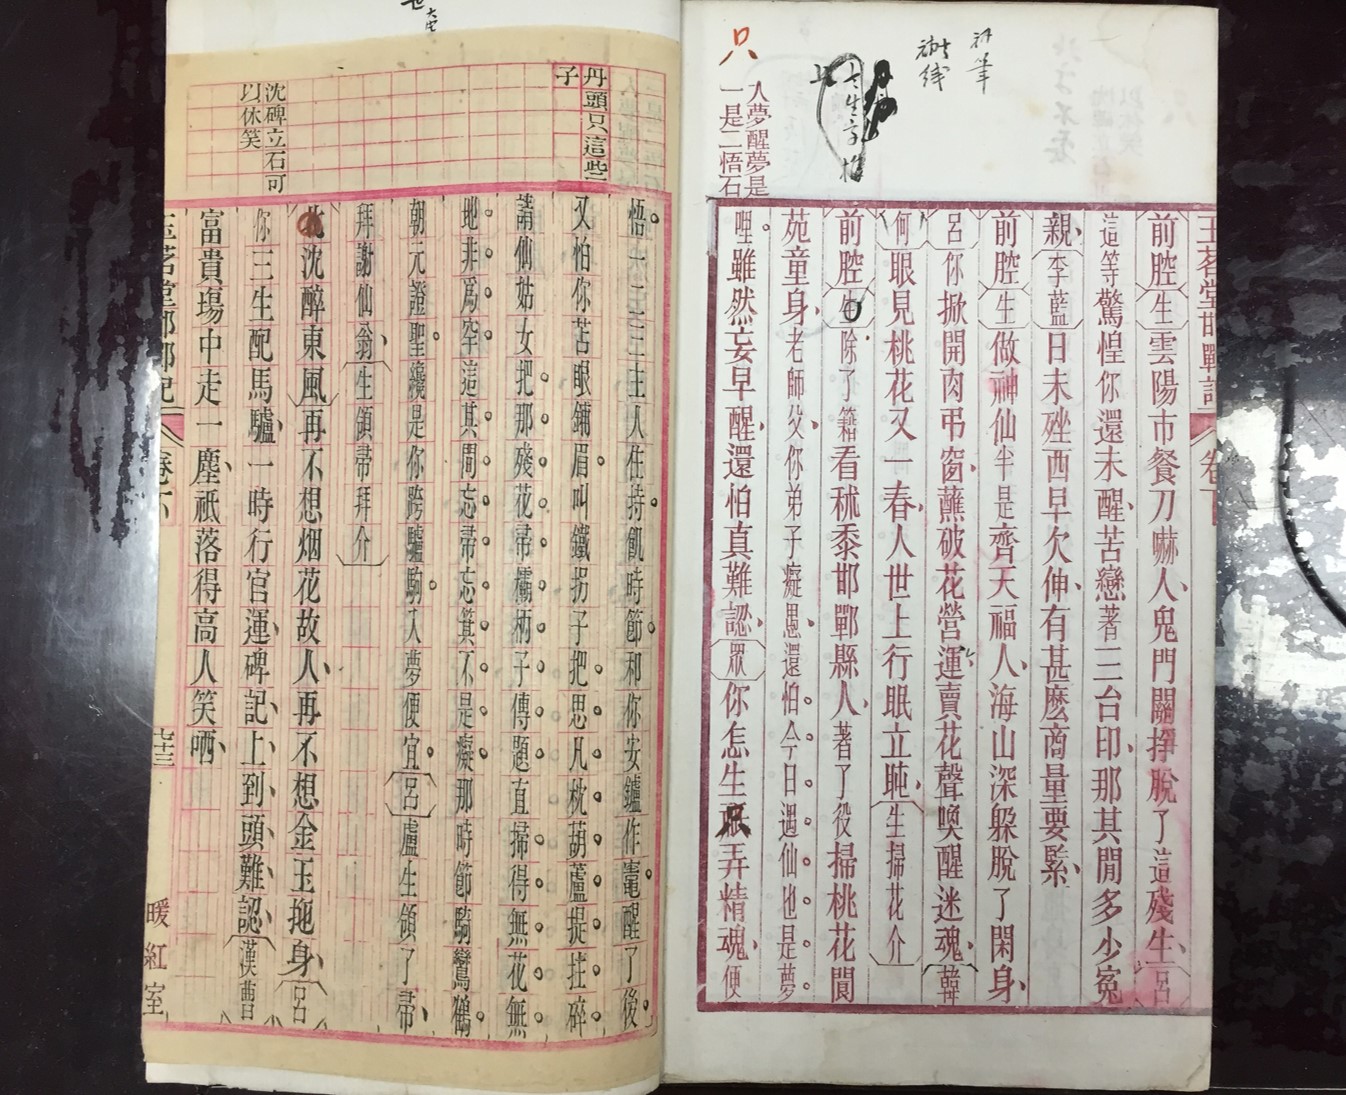 只
人夢醒夢是
一是二悟石
玉茗堂邯鄲記 卷下
前腔〔生〕雲陽市餐刀嚇人鬼門關掙脫了這殘生〔呂〕
這等驚惶你還未醒苦戀著三台印那其閒多少寃
親〔李藍〕日未矬西早欠伸有甚麽商量要緊
前腔〔生〕做神仙半是齊天福人海山深躱脫了閑身
〔呂〕你掀開肉弔窗蘸破花營運賣花聲喚醒迷魂〔韓
何〕眼見桃花又一春人世上行眠立盹〔生掃花介〕
前腔〔生〕除了籍看秫黍邯鄲縣人著了役掃桃花閬
苑童身老師父你弟子癡愚還怕今日遇仙也是夢
哩雖然妄早醒還怕真難認〔眾〕你怎生只弄精魂便
丹頭只這些
子
沈碑立石可
以休笑
悟一二三主人住持飢時節和你安鑪作竈醒了後
又怕你苦眼鋪眉叫鐵拐子把思凡枕葫蘆提拄碎
請仙姑女把那殘花帚欛柄子傳題直掃得無花無
地非爲罕這其閒忘帚忘箕不是癡那時節騎鸞鶴
朝元證聖纔是你跨驢駒入夢便宜〔呂〕盧生領了帚
拜謝仙翁〔生領帚拜介〕
沈醉東風〕再不想烟花故人再不想金玉拖身〔呂〕
你三生配馬驢一時行官運碑記上到頭難認〔漢曹〕
富貴塲中走一塵祇落得高人笑哂
玉茗堂邯鄲記 卷下 七十三 暖紅室